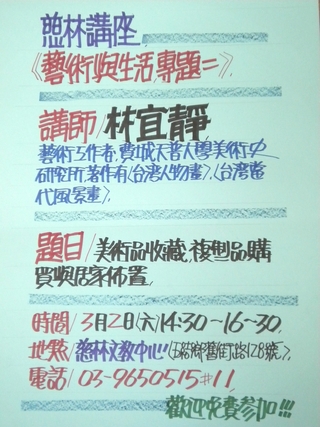 慈林講座
《藝術與生活專題二》
講師/林宜靜
藝術工作者,費城天普大學美術史
研究所,著作有《台灣人物畫》,《台灣當
代風景畫》
題目/美術品收藏,複型品購
買與居家佈置
時間/3月2日(六)14:30~16~30
地點/慈林文教中心(五結鄉舊街路128號)
電話/03-9650515#11
歡迎免費參加!!!